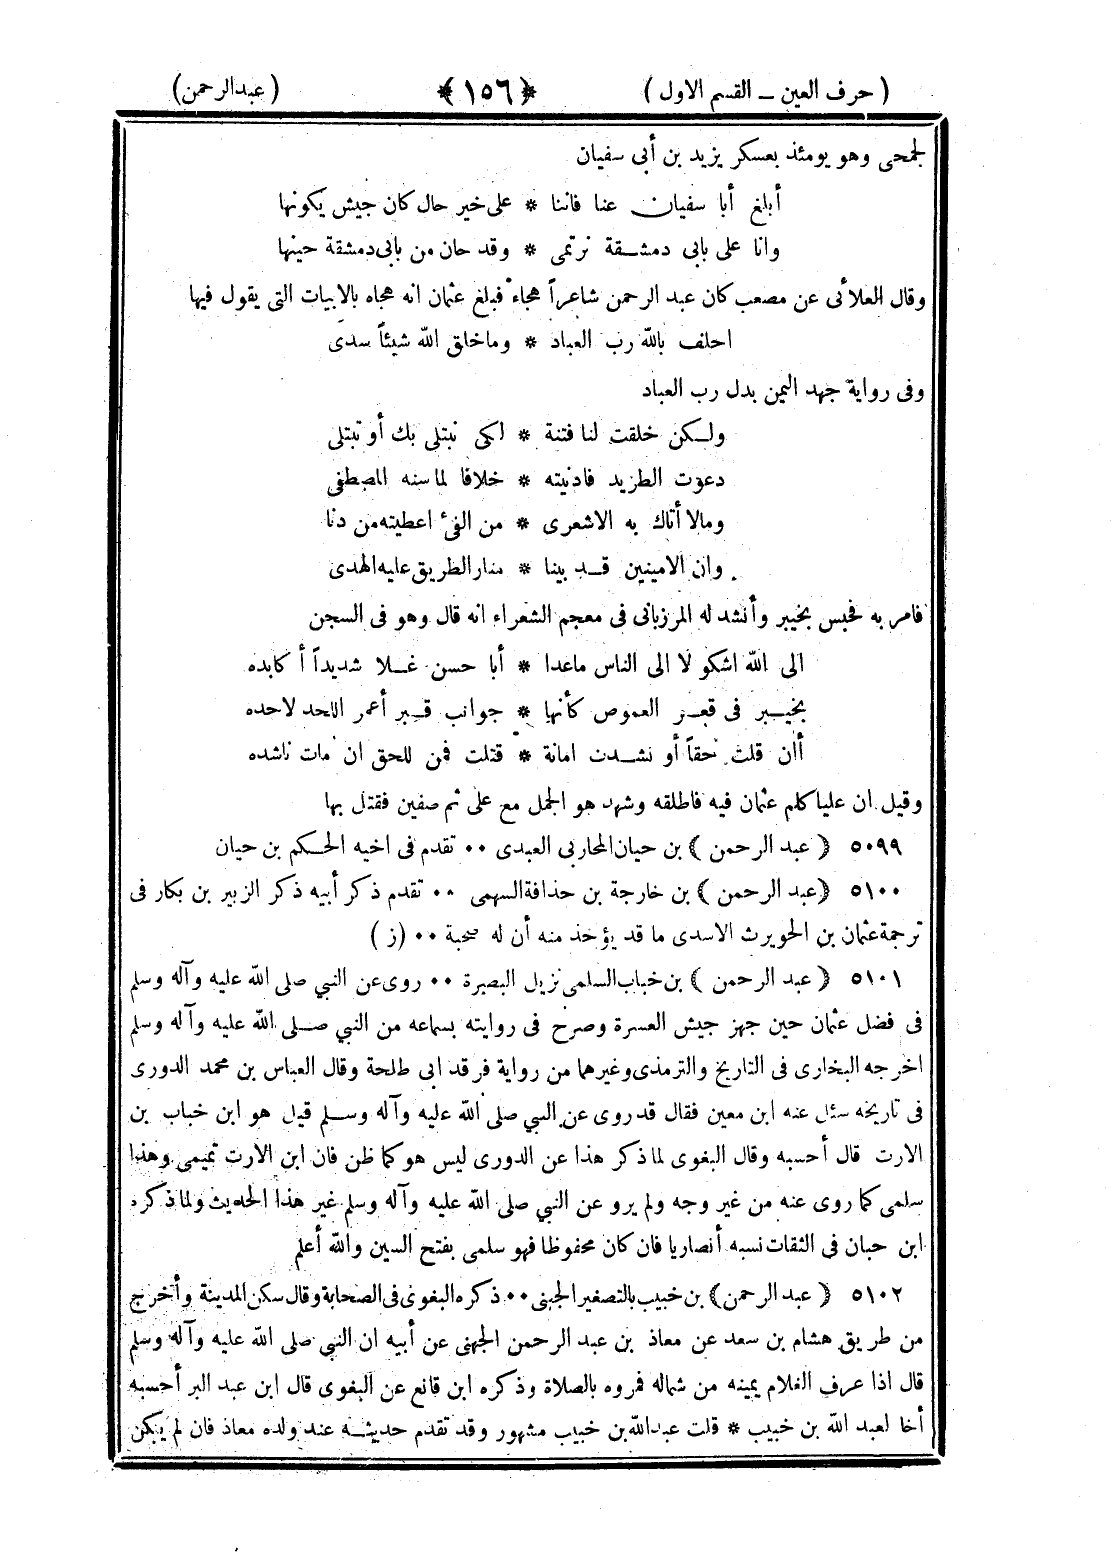 ( حرف العين ــ القسم الاول )
﴿ ١٥٦ ﴾
( عبدالرحمن )
لجمحى وهو يومئذ بعسكر يزيد بن أبى سفيان
أبلغ أبا سفيان عنا فاننا * على خير حال كان جيش يكونها
وانا على بابى دمشقة نرتمى * وقد حان من بابى دمشقة حينها
وقال العلائى عن مصعب كان عبد الرحمن شاعراً هجاء فبلغ عثمان انه هجاه بالابيات التى يقول فيها
احلف بالله رب العباد * وما خلق الله شيئاً سدى
وفى رواية جهد اليمن بدل رب العباد
ولكن خلقت لنا فتنة * لكى نبتلى بك أو تبتلى
دعوت الطريد فادنيته * خلافا لما سنه المصطفى
ومالا أتاك به الاشعرى * من الفىء اعطيته من دنا
وان الامينين قد بينا * منار الطريق عليه الهدى
فامر به فحبس بخيبر وأنشد له المرزبانى فى معجم الشعراء انه قال وهو فى السجن
الى الله اشكو لا الى الناس ماعدا * أبا حسن غلا شديداً أكابده
بخيبر فى قعر العموص كأنها * جوانب قبر أعمر اللحد لاحده
أان قلت حقاً أو نشدت امانة * قتلت فمن للحق ان مات ناشده
وقيل ان عليا كلم عثمان فيه فاطلقه وشهد هو الجمل مع على ثم صفين فقتل بها
٥٠٩٩ ﴿ عبد الرحمن ﴾ بن حيان المحاربى العبدى ٠٠ تقدم فى اخيه الحكم بن حيان
٥١٠٠ ﴿ عبد الرحمن ﴾ بن خارجة بن حذافة السهمى ٠٠ تقدم ذكر أبيه ذكر الزبير بن بكار فى
ترجمة عثمان بن الحويرث الاسدى ما قد يؤخذ منه أن له صحبة ٠٠ ( ز )
٥١٠١ ﴿ عبد الرحمن ﴾ بن خباب السلمى نزيل البصرة ٠٠ روى عن النبي صلى الله عليه وآله وسلم
فى فضل عثمان حين جهز جيش العسرة وصرح فى روايته بسماعه من النبي صلى الله عليه وآله وسلم
اخرجه البخارى فى التاريخ والترمذى وغيرهما من رواية فرقد ابى طلحة وقال العباس بن محمد الدورى
فى تاريخه سئل عنه ابن معين فقال قد روى عن النبي صلى الله عليه وآله وسلم قيل هو ابن خباب بن
الارت قال أحسبه وقال البغوى لما ذكر هذا عن الدورى ليس هو كما ظن فان ابن الارت تميمى وهذا
سلمى كما روى عنه من غير وجه ولم يرو عن النبي صلى الله عليه وآله وسلم غير هذا الحديث ولما ذكره
ابن حبان فى الثقات نسبه أنصاريا فان كان محفوظا فهو سلمى بفتح السين والله أعلم
٥١٠٢ ﴿ عبد الرحمن ﴾ بن خبيب بالتصغير الجهنى ٠٠ ذكره البغوى فى الصحابة وقال سكن المدينة وأخرج
من طريق هشام بن سعد عن معاذ بن عبد الرحمن الجهنى عن أبيه ان النبي صلى الله عليه وآله وسلم
قال اذا عرف الغلام يمينه من شماله فمروه بالصلاة وذكره ابن قانع عن البغوى قال ابن عبد البر أحسبه
أخا لعبد الله بن خبيب * قلت عبدالله بن خبيب مشهور وقد تقدم حديثه عند ولده معاذ فان لم يكن